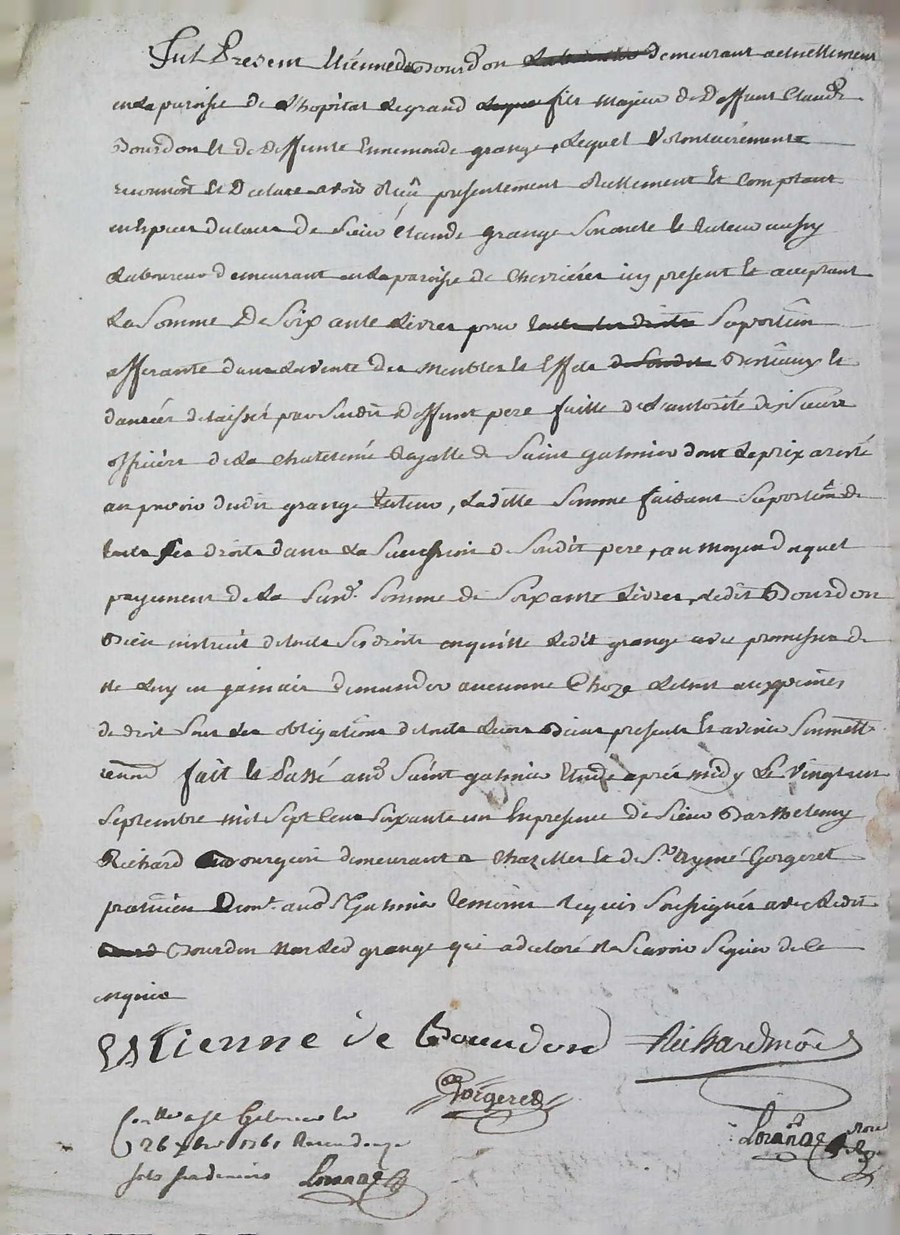 Fut Present Etienne Bourdon laboureur demeurant actuellement
en la paroisse de L'hopital Legrand lequel fils majeur de Deffunt Claude
Bourdon et de deffunte Ennemonde grange, Lequel Volontairement
reconnoit et Declare avoir Reçu presentement Reellement et Comptant
en Especes du cours de Sieur Claude grange Son oncle et tuteur aussy
Laboureur demeurant en la paroisse de Chevrieres icy present et acceptant
La Somme De Soixante Livres pour toutes les droits Sa portion
afferante dans La vente des Meubles et Effets de Sondit Bestiaux et
danrées delaissés par Sondit Deffunt pere faitte de L'autorité des Sieurs
officiers de La Chatelenie Royalle de Saint galmier dont Le prix a resté
au pouvoir dudit grange tuteur, Laditte Somme faisant Sa portion de
touts ses droits dans La Succession de Sondit pere, au moyen duquel
payement de La Susd. Somme de Soixante Livres, Ledit Bourdon
Bien instruit de touts Ses droits en quitte Ledit grange avec promesse de
ne Luy en jamais demander aucunne Choze Le tout aux peines
de droit Sous Les obligations de touts Leurs Biens presents et avenir Soumett.
renon. fait et Passé aud. Saint galmier Etude après midy Le Vingt un
Septembre mil Sept Cent Soixante un En presence de Sieur Barthelemy
Richard Bourgeois demeurant a Chazelles et de Sr. Aymé Gorgeret
praticien Demt. aud. St. Galmier temoins Requis Soussignés avec Ledit
Bourdon Non Led. grange qui a declaré ne Scavoir Signer de ce
enquis
EStienne de Bourdon Richard
Gorgeret
Controllé a St Galmier le
26 7bre 1761 Reçu douze
sols six deniers Lorange
Lorange Nore